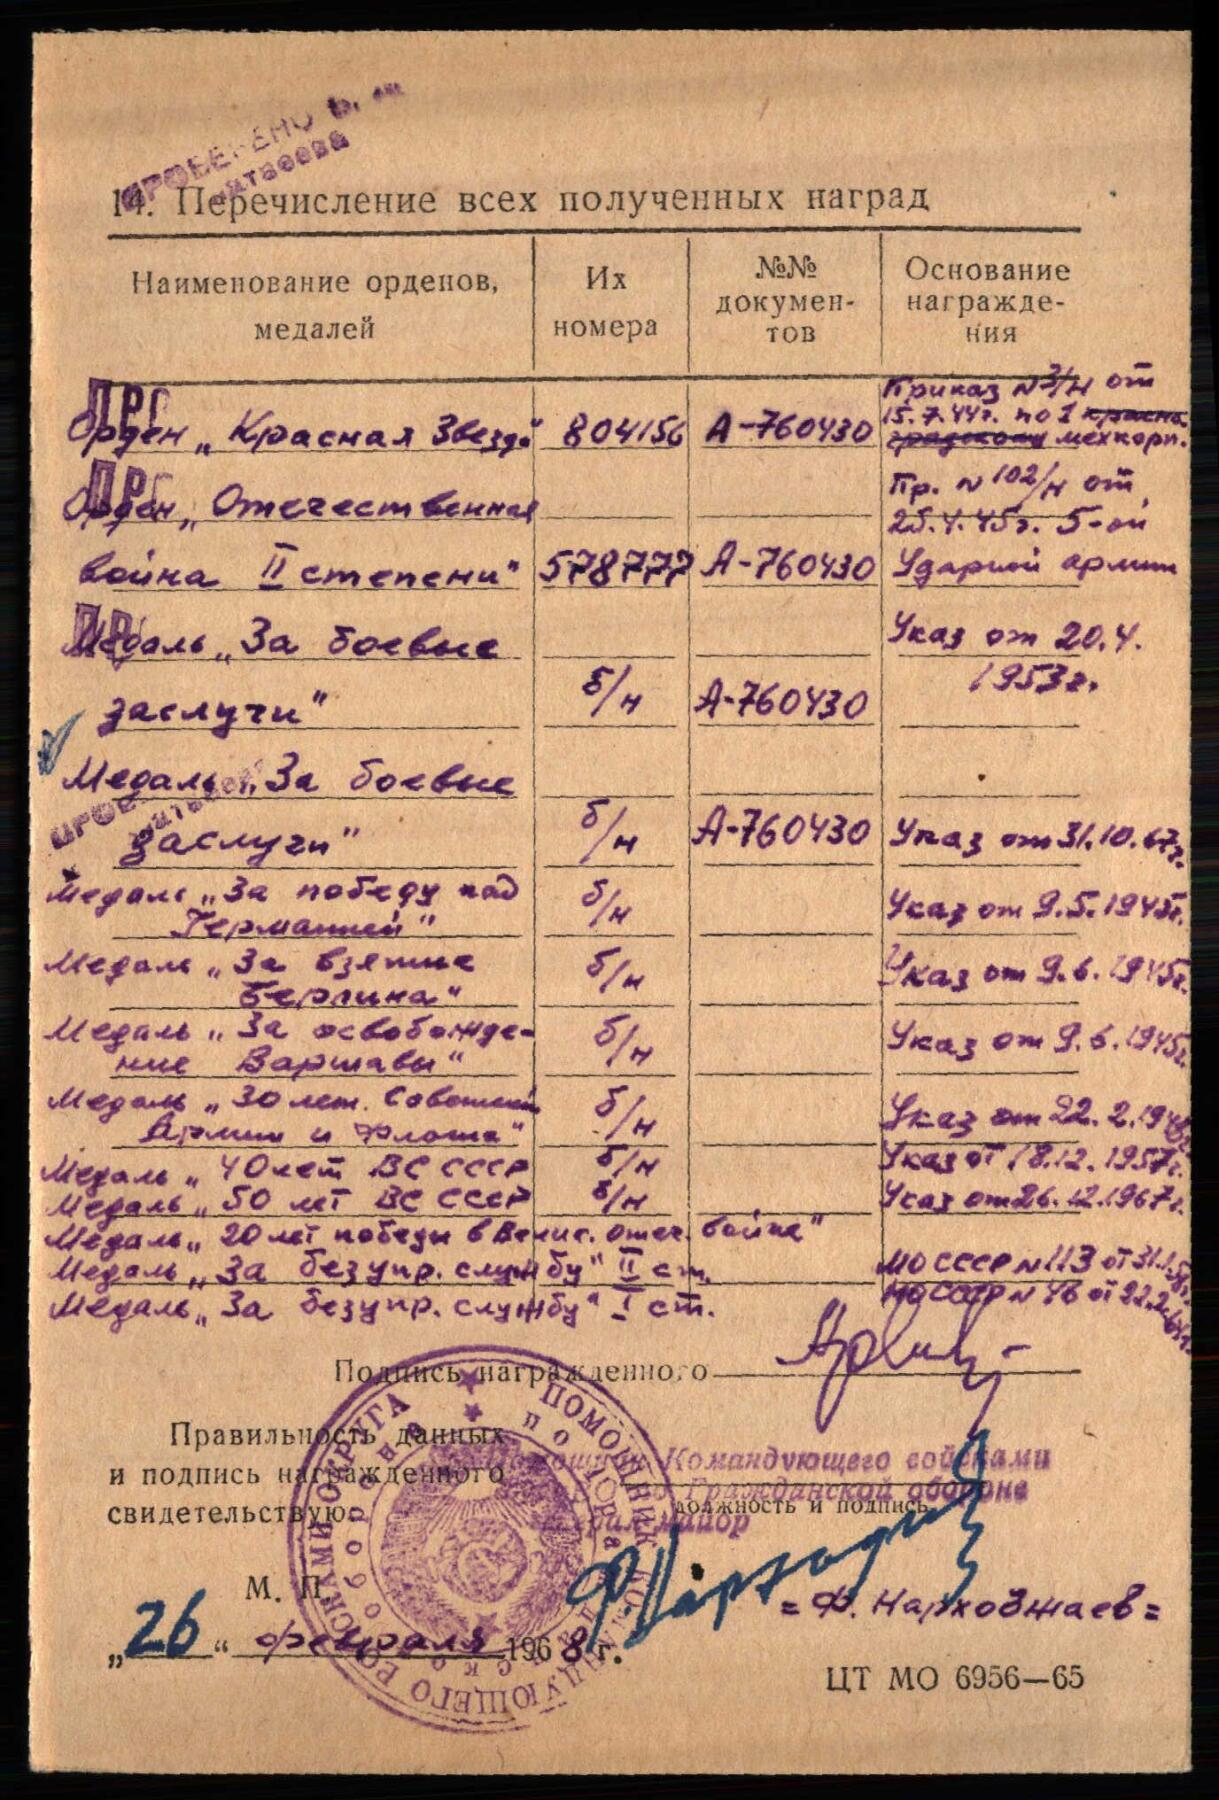 ПРОВЕРЕНО
14. Перечисление всех полученных наград
Наименование орденов, медалей
Их номера
№№ докумен-тов
Основание награжде-ния
ПРС
Приказ №3/н от
15.7.44г. по 1 красно
Орден „Красная Звезда" 804156 А-760430 градскому мехкорп.
ПРС
Пр. №102/н от
Орден „Отечественная 25.4.45г. 5-ой
война II степени" 578777 А-760430 Ударной армии
Медаль „За боевые Указ от 20.4.
заслуги" б/н А-760430 1953г.
Медаль „За боевые
заслуги" б/н А-760430 Указ от 31.10.67г.
Медаль „За победу над
Германией" б/н Указ от 9.5.1945г.
Медаль „За взятие
Берлина" б/н Указ от 9.6.1945г.
Медаль „За освобожде-
ние Варшавы" б/н Указ от 9.6.1945г.
Медаль „30 лет. Советской
Армии и Флота" б/н Указ от 22.2.1948
Медаль „40 лет ВС СССР б/н Указ от 18.12.1957г.
Медаль „50 лет ВС СССР б/н Указ от 26.12.1967г.
Медаль „20 лет победы в Велик. отеч. войне"
Медаль „За безупр. службу" II ст. МО СССР №113 от 31.1.
Медаль „За безупр. службу" I ст. МО СССР № 46 от 22.2.
Подпись награжденного
Правильность данных
и подпись награжденного
свидетельствую:
Командующего войсками
по Гражданской обороне
генерал-майор
должность и подпись
М. П.
= Ф. Нарходжаев =
„26" февраля 1968 г.
ПОМОЩНИК КОМАНДУЮЩЕГО ВОЙСКАМИ ОКРУГА
ЦТ МО 6956—65